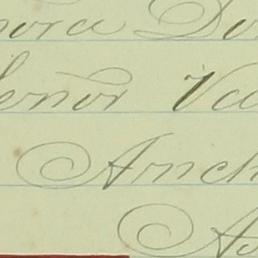 nora Do
Señor Va
Anch
A